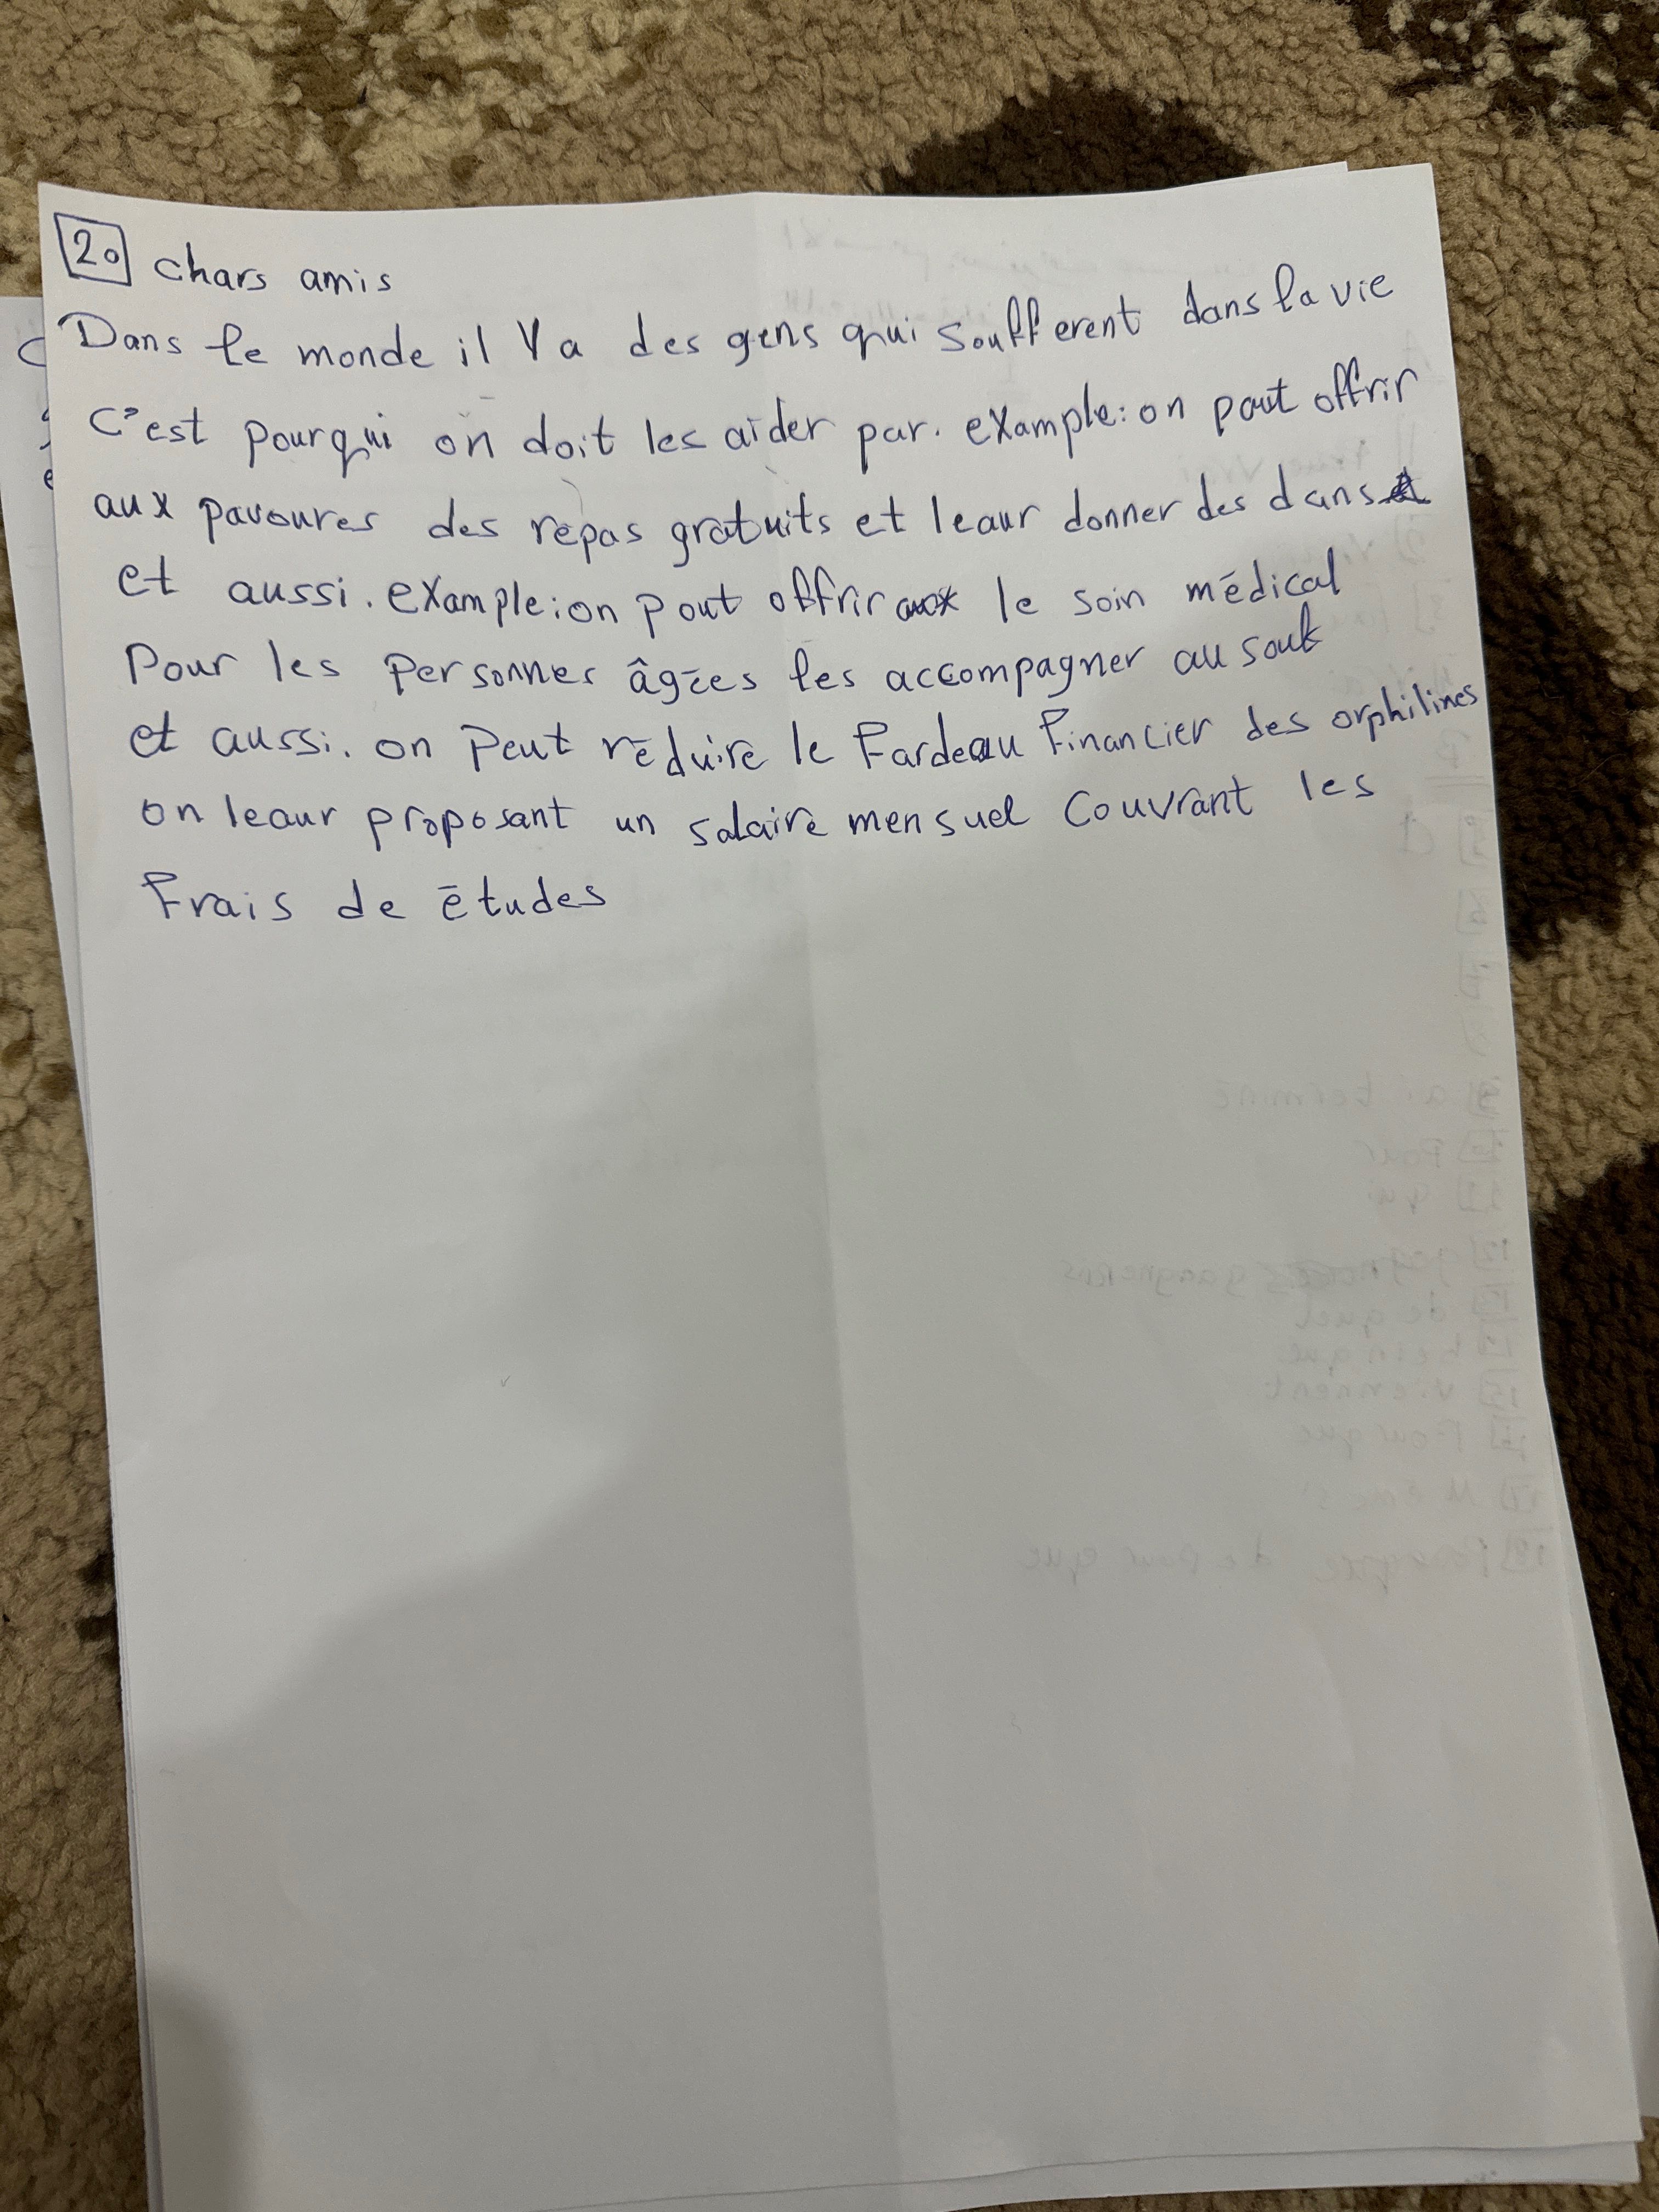 20 chars amis
Dans le monde il Y a des gens qui soufferent dans la vie
C'est pourqui on doit les aider par. example: on pout offrir
aux pavoures des repas gratuits et leaur donner des dans
et aussi. example: on pout offrir le soin médical
Pour les personnes âgées les accompagner au souk
et aussi. on Peut réduire le Fardeau Financier des orphilines
on leaur proposant un salaire mensuel Couvrant les
Frais de études